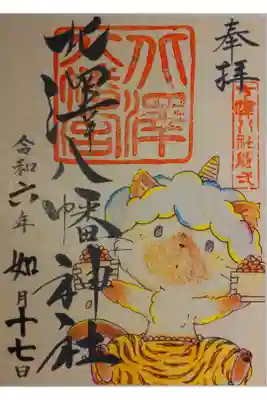 奉拝
北澤八幡神社
北澤
八幡宮
令和六年
如月十七日